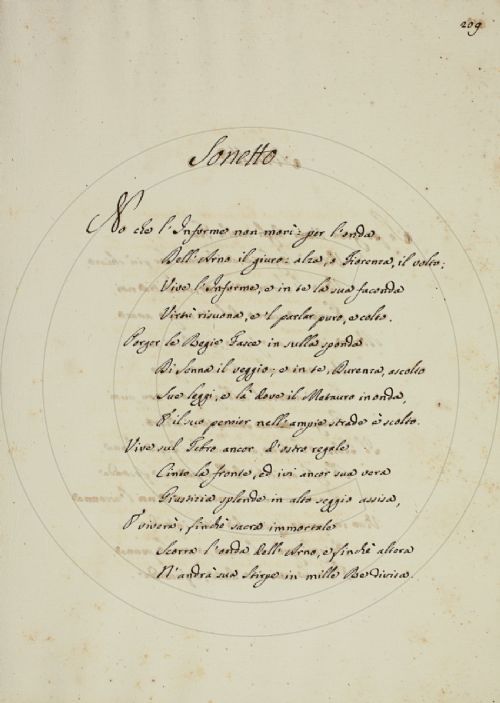 209
Sonetto
No che l'Informe non morì: per l'onda
Dell'Arno il giuro: alza, o Fiorenza, il volto:
Vive l'Informe, e in te la sua faconda
Virtù risuona, e 'l parlar puro, e colto.
Porger le Regie Fasce in sulla sponda
Di Senna il veggio; e in te, Durenza, ascolto
Sue leggi, e là dove il Metauro inonda,
E il suo pensier nell'ampie strade è scolto.
Vive sul Tebro ancor d'ostro regale
Cinto la fronte, ed ivi ancor sua vera
Giustizia splende in alto seggio assisa,
E viverà, finchè sacra immortale
Scorra l'onda dell'Arno, e finchè altera
N'andrà sua Stirpe in mille Re divisa.